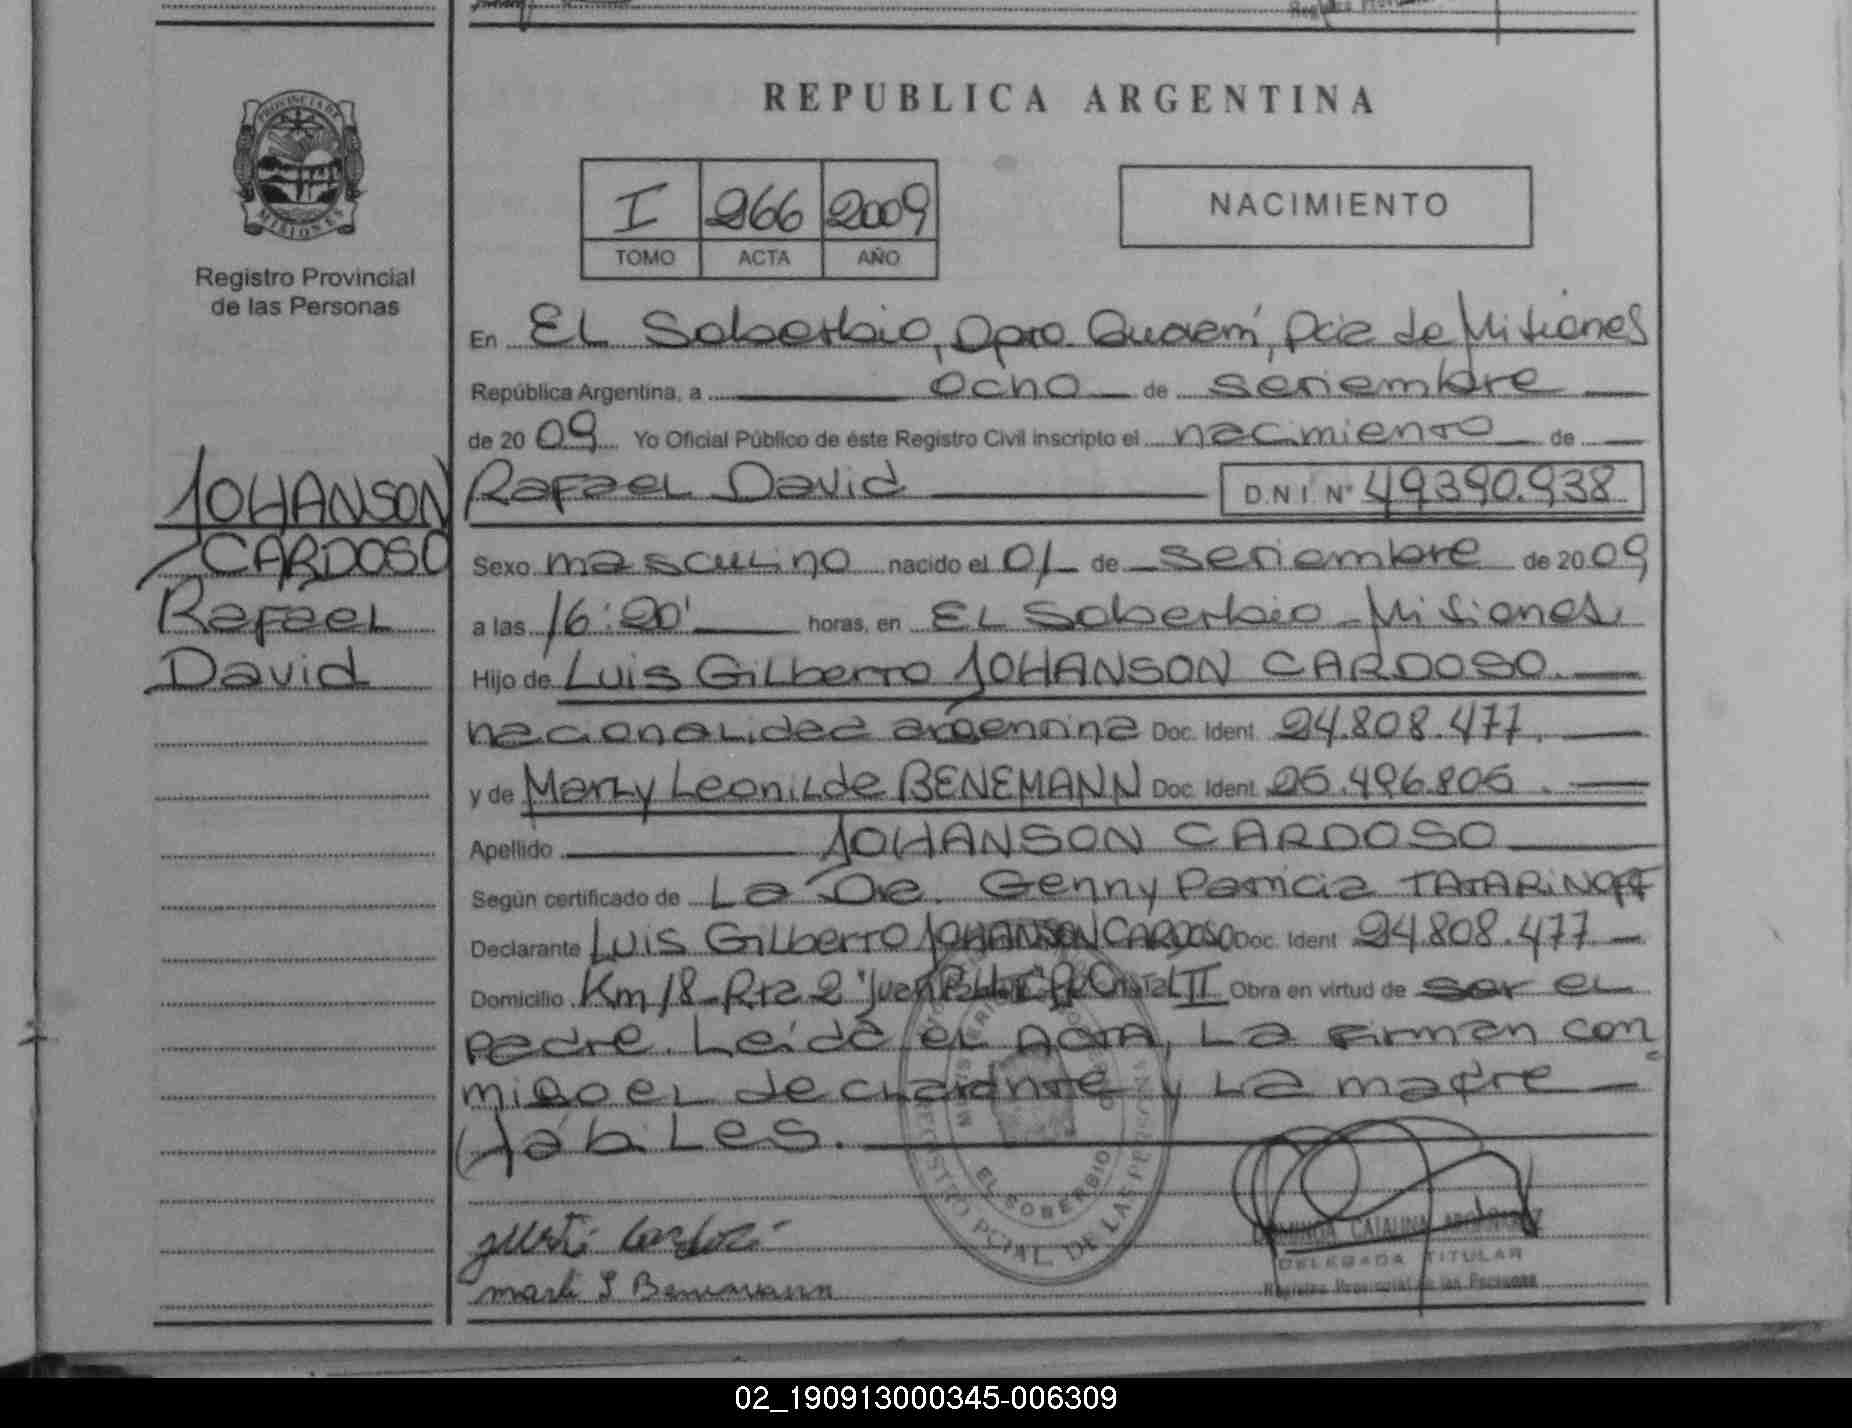 PROVINCIA DE
MISIONES
Registro Provincial
de las Personas
JOHANSON
CARDOSO
Rafael
David
REPUBLICA ARGENTINA
I 266 2009
TOMO ACTA AÑO
NACIMIENTO
En EL Soberbio, Dpto. Guaraní, Pcia de Misiones
República Argentina, a ocho de setiembre
de 2009 Yo Oficial Público de éste Registro Civil inscripto el nacimiento de
Rafael David D.N.I. Nº 49390.938
Sexo masculino nacido el 01 de setiembre de 2009
a las 16:20' horas, en EL Soberbio - Misiones
Hijo de Luis Gilberto JOHANSON CARDOSO.
nacionalidad argentina Doc. Ident. 24.808.477.
y de Marly Leonilde BENEMANN Doc. Ident. 26.496.806.
Apellido JOHANSON CARDOSO
Según certificado de La Dra. Genny Patricia TATARINOFF
Declarante Luis Gilberto JOHANSON CARDOSO Doc. Ident 24.808.477
Domicilio Km 18 - Rta 2 "Juan II Obra en virtud de ser el
padre. Leída el ACTA, La firman con
migo el declarante y La madre
Hábiles.
REGISTRO PCIAL. DE LAS PERSONAS
EL SOBERBIO
Cardozo
marli L Benemann
CATALINA
DELEGADA TITULAR
Registro Provincial de las Personas
02_190913000345-006309